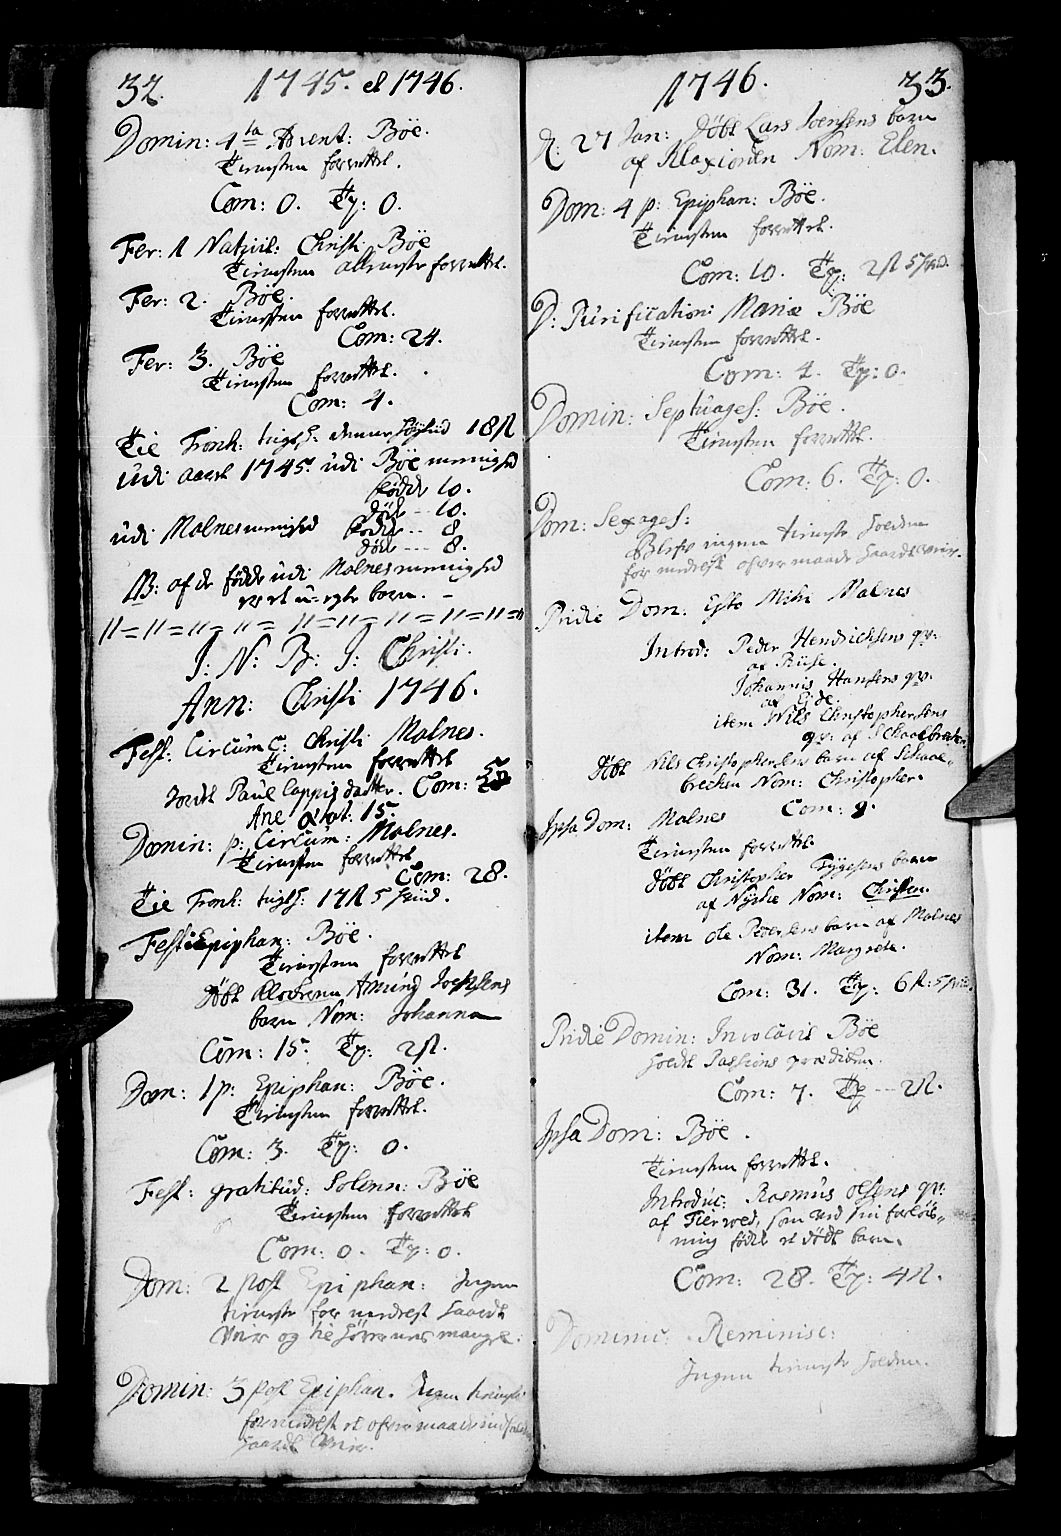 32. 1745. et 1746.
Domin: 4ta Advent: Böe.
Tienesten forrettet.
Com: 0. Tp: 0.
Fer: 1 Nativit: Christi Böe
Tienesten forrettet.
Fer: 2. Böe.
Tienesten forrettet.
Com: 24.
Fer: 3. Böe
Tienesten forrettet.
Com: 4.
Tie Tronh: denne Høytid
udi aaret 1745. udi Böe menighed
fødde 10.
døde -- 10.
udi Malnes menighed fødde -- 8
døde --- 8.
NB: af de fødde udi Malnes menighed
er et u-egte barn. -
J: N: B: J: Christi.
Ann: Christi 1746.
Fest: Circumc: Christi Malnes.
Tienesten forrettet
Jordet Paul datter. Com:
Ane ætat. 15.
Domin: p: Circum: Malnes.
Tienesten forrettet
Com: 28.
Tie Tronh:
Fest: Epiphan: Böe.
Tienesten forrettet
døbt Amund
barn Nom: Johanna
Com: 15. Tp:
Dom: 1 p: Epiphan: Böe.
Tienesten forrettet.
Com: 3. Tp: 0.
Fest: gratitud: Solenn: Böe
Tienesten forrettet
Com: 0. Tp: 0.
Dom: 2 post Epiphan: Ingen
tieneste for haardt
Veir og
Domin: 3 post Epiphan. Ingen tieneste
haardt Veir.
1746. 33.
D: 27 Jan: døbt Lars Joensens barn
af Klaxiorden Nom: Elen.
Dom: 4 p: Epiphan: Böe.
Tienesten forrettet.
Com: 10. Tp:
D: Purification: Mariæ Böe
Tienesten forrettet.
Com: 4. Tp: 0.
Domin: Septuages: Böe.
Tienesten forrettet.
Com: 6. Tp: 0.
Dom: Sexages:
Blev ingen tieneste holden
for medelst ofver maade haardt Veir.
Pridie Dom: Esto Mihi Malnes
Introd: Peder Hendrichsens qv:
af
Johannis Hansens qv:
af Eide.
item Nils Christophersens
qv: af
døbt Nils Christophersens barn af Skaal-
brechen Nom: Christopher.
Ipsa Dom: Malnes Com: 8.
Tienesten forrettet.
døbt Christopher Tygesens barn
af Nyche Nom: Christen.
item Ole Pedersens barn af Malnes
Nom: Margrete.
Com: 31. Tp:
Pridie Domin: Invocavit Böe
holdt Passions prædiken.
Com: 7. Tp
Ipsa Dom: Böe.
Tienesten forrettet.
Introduc: Rasmus Olsens qv:
af Fierved, som ved sin forløs-
ning fødte et dødt barn.
Com: 28. Tp:
Dominic: Reminisc:
Ingen tieneste holden.